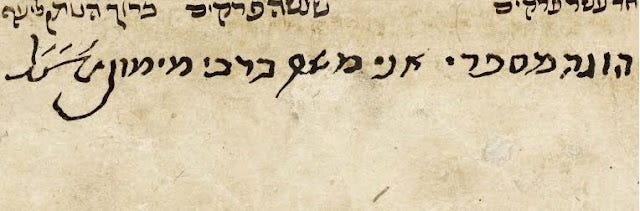 חד עשר פרקים שלשה פרקים ברוך הנותן ליעף
הוגה מספרי אני משה ברבי מימון זצ״ל